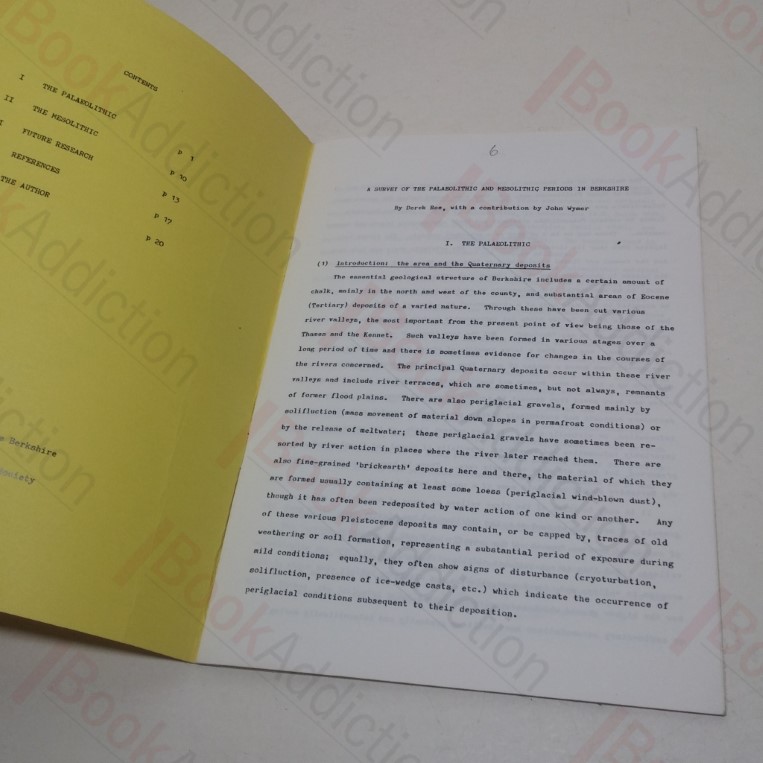 CONTENTS
I THE PALAEOLITHIC p 1
II THE MESOLITHIC p 10
I FUTURE RESEARCH p 13
REFERENCES p 17
THE AUTHOR p 20
Berkshire
Society
6
A SURVEY OF THE PALAEOLITHIC AND MESOLITHIC PERIODS IN BERKSHIRE
By Derek Roe, with a contribution by John Wymer
I. THE PALAEOLITHIC
(1) Introduction: the area and the Quaternary deposits
The essential geological structure of Berkshire includes a certain amount of
chalk, mainly in the north and west of the county, and substantial areas of Eocene
(Tertiary) deposits of a varied nature. Through these have been cut various
river valleys, the most important from the present point of view being those of the
Thames and the Kennet. Such valleys have been formed in various stages over a
long period of time and there is sometimes evidence for changes in the courses of
the rivers concerned. The principal Quaternary deposits occur within these river
valleys and include river terraces, which are sometimes, but not always, remnants
of former flood plains. There are also periglacial gravels, formed mainly by
solifluction (mass movement of material down slopes in permafrost conditions) or
by the release of meltwater; these periglacial gravels have sometimes been re-
sorted by river action in places where the river later reached them. There are
also fine-grained 'brickearth' deposits here and there, the material of which they
are formed usually containing at least some loess (periglacial wind-blown dust),
though it has often been redeposited by water action of one kind or another. Any
of these various Pleistocene deposits may contain, or be capped by, traces of old
weathering or soil formation, representing a substantial period of exposure during
mild conditions; equally, they often show signs of disturbance (cryoturbation,
solifluction, presence of ice-wedge casts, etc.) which indicate the occurrence of
periglacial conditions subsequent to their deposition.
BookAddiction